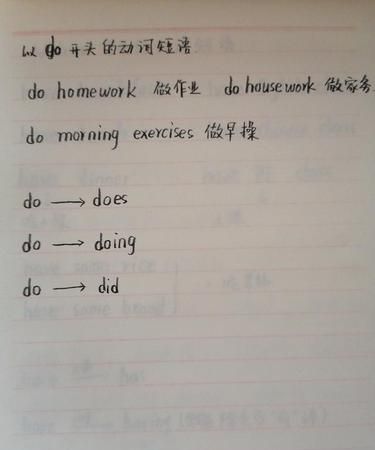 以 do 开头的动词短语
do homework 做作业 do housework 做家务
do morning exercises 做早操
do → does
do → doing
do → did